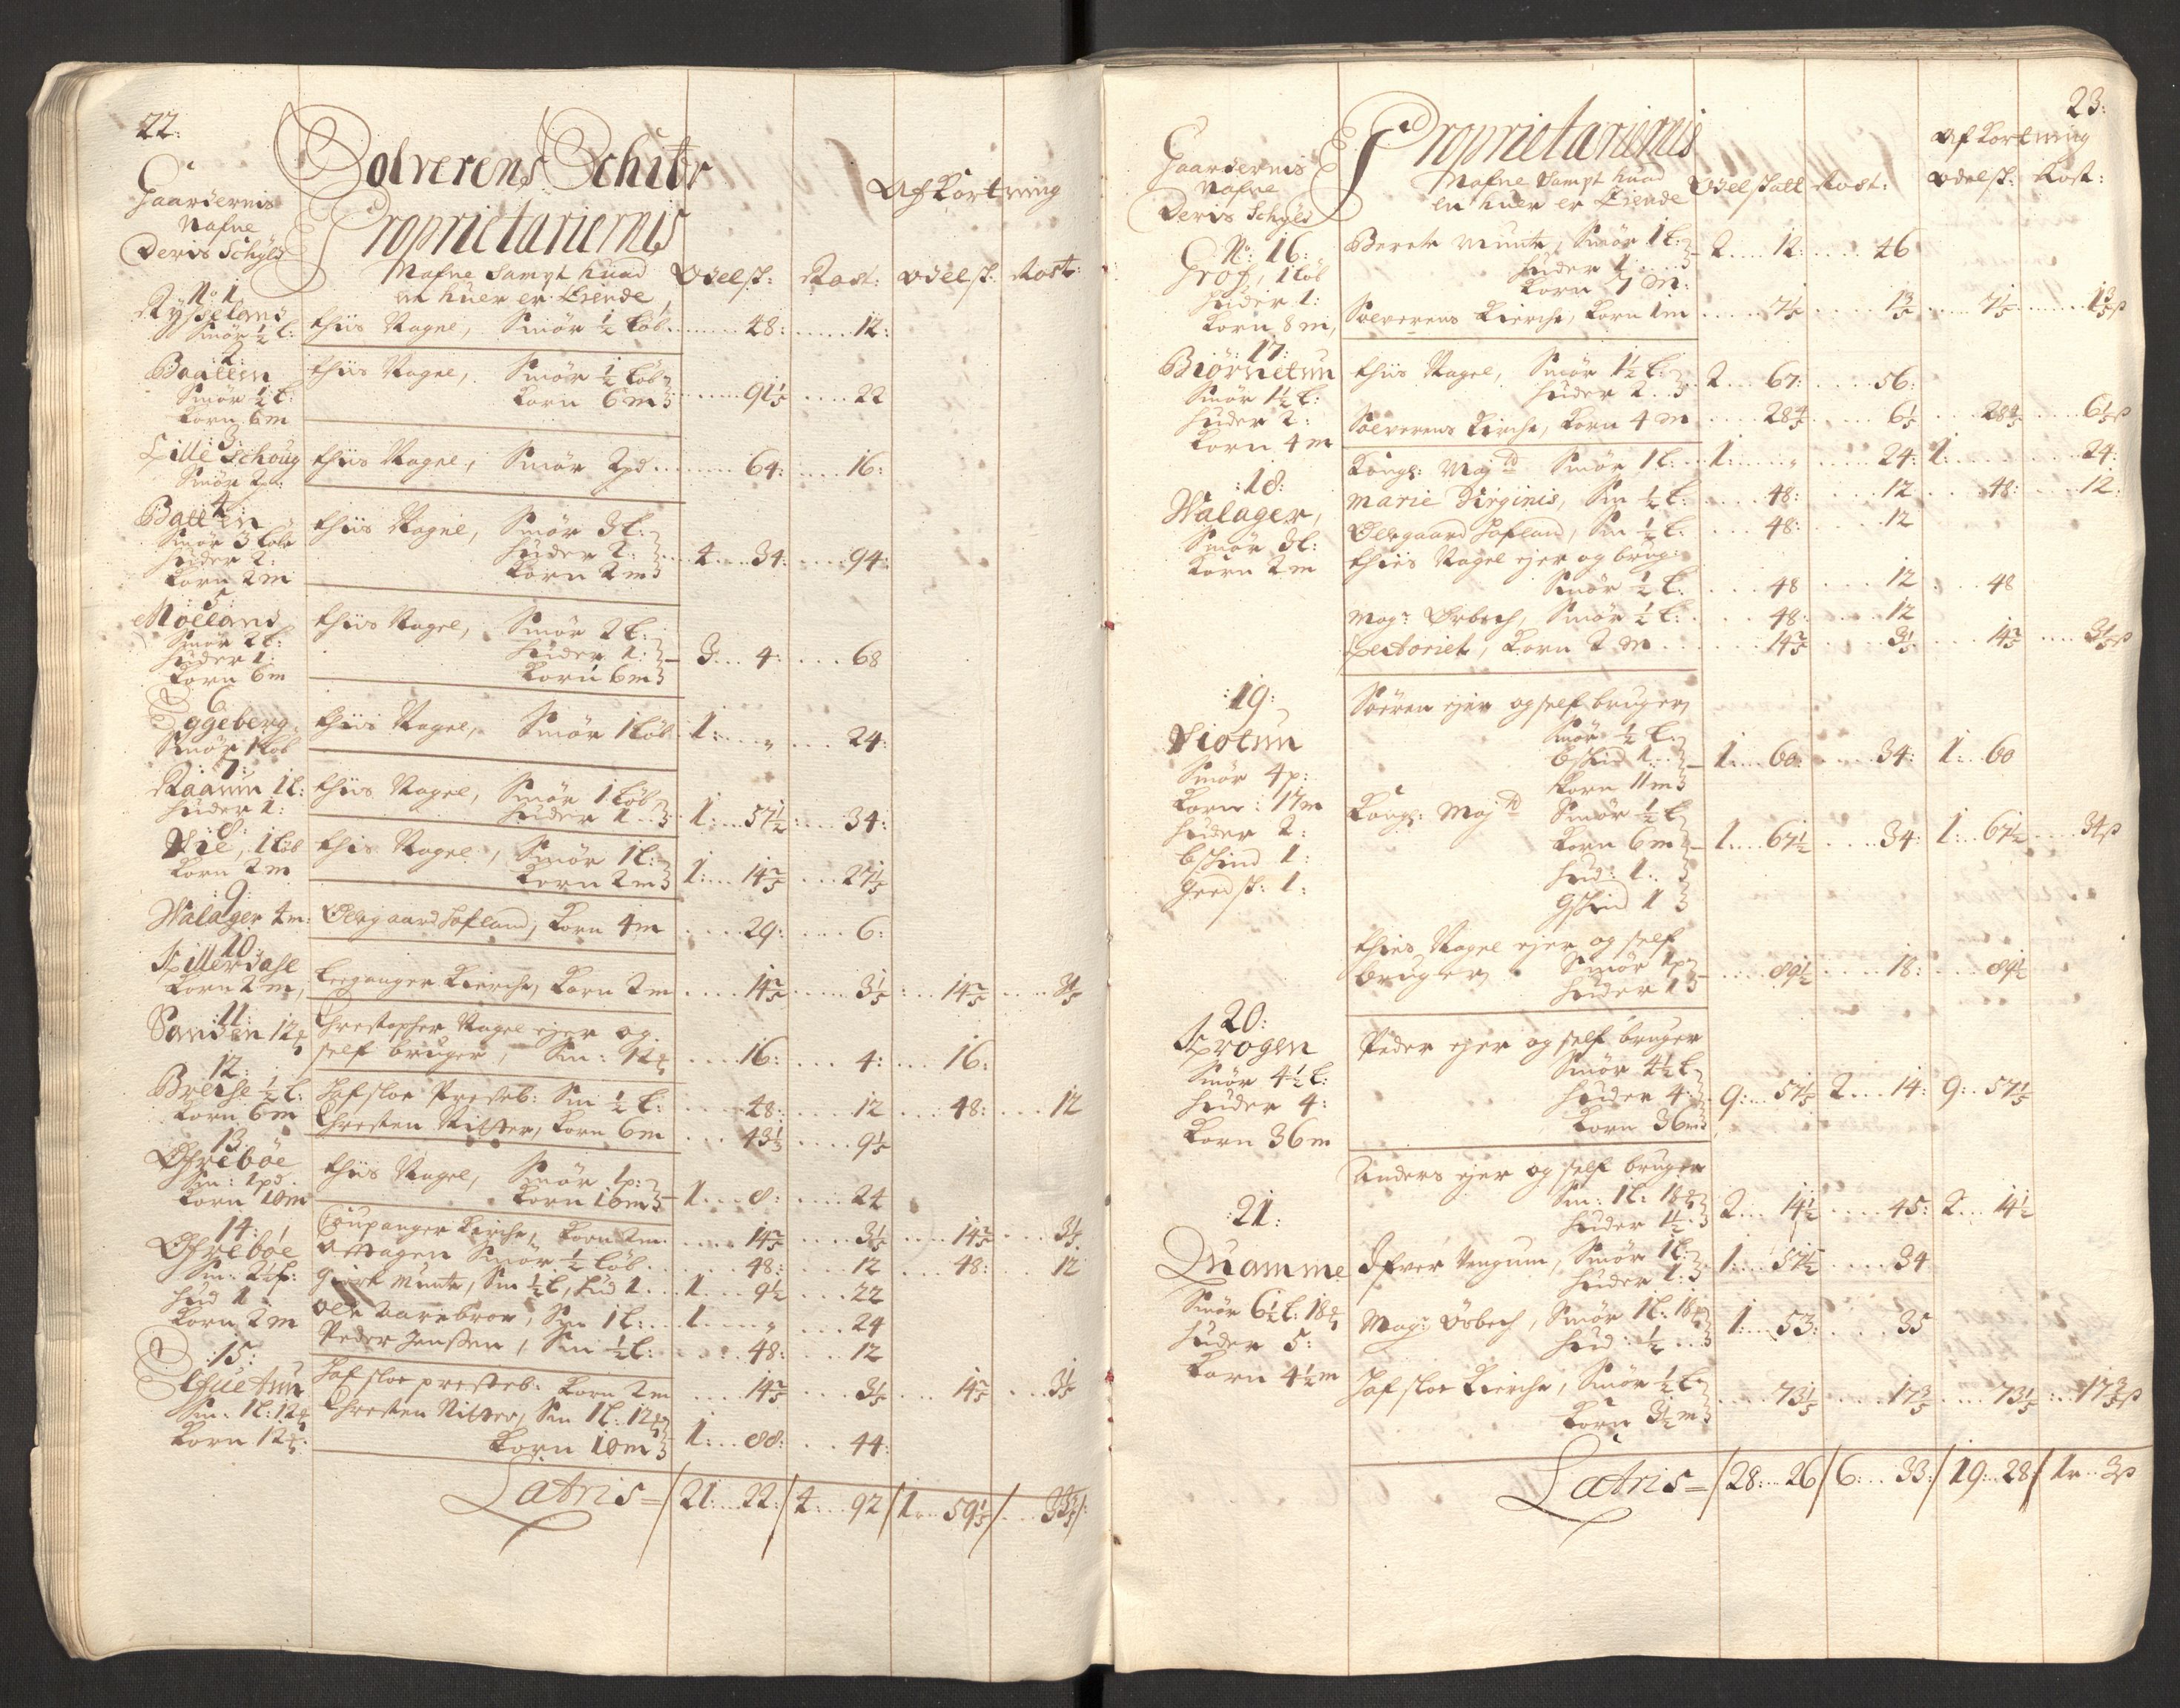 22:
Solverens Schibr
Gaardernis Nafne Deris Schyld
Proprietariernis
Nafne Sampt huad en huer er Eiende
Odelsk: Rost:
Afkortning
Odelsk: Rost:
No 1 Rysseland Smør ½ l: thiis Nagel, Smør ½ løb .... 48: .... 12:
:2: Baallen Smør ½ l: Korn 6 m thiis Nagel, Smør ½ løb Korn 6 m .... 91⅕ .... 22
:3: Lille Schoug Smør 2 p: thiis Nagel, Smør 2 pd .... 64: .... 16:
4: Ballen Smør 3 løbe Huder 2: Korn 2 m thiis Nagel, Smør 3 l: Huder 2: Korn 2 m 4 ... 34: .... 94:
:5: Molland Smør 2 l: Huder 1: Korn 6 m thiis Nagel, Smør 2 l: Huder 1: Korn 6 m 3 ... 4: ... 68
6 Eggeberg Smør 1 løb thiis Nagel, Smør 1 løb 1: .... „ ... 24:
:7: Raaum 1 l: Huder 1: thiis Nagel, Smør 1 løb Huder 1 1: ... 57½ .... 34:
:8: Vie, 1 løb Korn 2 m this Nagel, Smør 1 l: Korn 2 m 1: ... 14⅖ ... 27⅕
:9: Walager 4 m: Olergaard Hafland, Korn 4 m .... 29: .... 6:
10: Korn 2 m, Leeganger Kierche, Korn 2 m .... 14⅖ .... 3⅕ .... 14⅖ .... 3⅕
:11: Sanden 12 Christopher Nagel ejer og
self bruger, Sm: 12 .... 16: .... 4: ... 16:
12: Breche ½ l: Korn 6 m Hafsloe Presteb: Sm ½ l: .... 48: .... 12 .... 48: ... 12
Chresten Nitter, Korn 6 m ... 43½ .... 9⅕
13. Øfrebøe Sm: 1 pd. Korn 10 m thiis Nagel, Smør 1 p: Korn 10 m 1 ... 8: .... 24
14: Øfrebøe Sm: 2½ l: Hud 1: Korn 2 m Coupanger Kirche, Korn 2 m .... 14⅖ .... 3⅕ .... 14⅖ ... 3⅕
Smør ½ løb .... 48: .... 12 ... 48: ... 12
Giert Munte, Sm ½ l, Hud 1 ... 1 ... 9½ .... 22
Ole Aarebroe, Sm 1 l: ... 1 .... „ ... 24
Peder Jenssen, Sm ½ l: .... 48: ... 12
:15: Elfuetun Sm: 1 l: 12 Korn 12 Hafsloe presteb: Korn 2 m ... 14⅖ ... 3⅕ ... 14⅖ ... 3⅕
Chresten Nitter, Sm 1 l: 12 Korn 10 m 1: ... 88: ... 44:
Latris = 21: ... 22: 4: ... 92 1 ... 59⅕
23:
Gaardernis Nafne Deris Schyld
Proprietariernis
Nafne Sampt huad en huer er Eiende
Odelskatt Rost:
Afkortning
Odelsk: Rost:
No: 16: Grof, 1 løb Huder 1: Korn 8 m, Berete Munte, Smør 1 l: Huder 1 Korn 7 m: 2 .... 12: .... 46
Solverens Kierche, Korn 1 m .... 7⅕ .... 1⅗ .... 7⅕ .... 1⅗ s
:17: Biørnetun Smør 1½ l: Huder 2: Korn 4 m thiis Nagel, Smør 1½ l: Huder 2 2 ... 67: .... 56:
Solverens Kirche, Korn 4 m .... 28⅘ .... 6⅕ ... 28⅘ ... 6⅕ s
:18: Walager, Smør 3 l: Korn 2 m Kongl: Maj tt Smør 1 l: .. 1: .... „ .... 24: 1: .... 24:
Marie Virginis, Sm ½ l: .... 48: .... 12 .. 48: ... 12:
Olergaard Hafland, Sm ½ l: ... 48: .... 12
thies Nagel ejer og brug:
Smør ½ l: ... 48 .... 12 ... 48
Mag: Ørbech, Smør ½ l: ... 48: .... 12
Lectoriet, Korn 2 m .... 14⅖ .... 3⅕ ... 14⅖ .... 3⅕ s
:19: Viotun Smør 4 p: Korn: 17 m Huder 2: bskind 1: geedsk: 1: Søeren ejer og self bruger
Smør ½ l: bskind 1 Korn 11 m 1 .... 60: .... 34: 1: .. 60
Kongl: Maj tt Smør ½ l Korn 6 m Hud: 1 gskind 1 1 .... 67½ .... 34: 1: .. 67½ .... 34 s
thies Nagel ejer og self
bruger Smør 1 p Huder 1 .... 89½ .... 18: ... 89½
:20: Sprogen Smør 4½ l: Huder 4: Korn 36 m Peder ejer og self bruger
Smør 4½ l: Huder 4: Korn 36 m 9: ... 57⅕ 2 ... 14: 9: .. 57⅕
:21: Quamme Smør 6½ l: 18 Huder 5: Korn 4½ m Anders ejer og self bruger
Sm: 1 l: 18 Huder 1½ 2 ... 14½ .... 45: 2 ... 14½
Ifver Vengum, Smør 1 l: Huder 1: 1: ... 57½ .... 34
Mag: Ørbech, Smør 1 l: 18 Hud: ½ 1: ... 53: .... 35
Hafsloe Kierche, Smør ½ l: Korn 3½ m .... 73⅕ .... 17⅗ .... 73⅕ ... 17⅗ s
Latris = 28: ... 26 6: ... 33: 19: .. 28: 1 ... 3 s